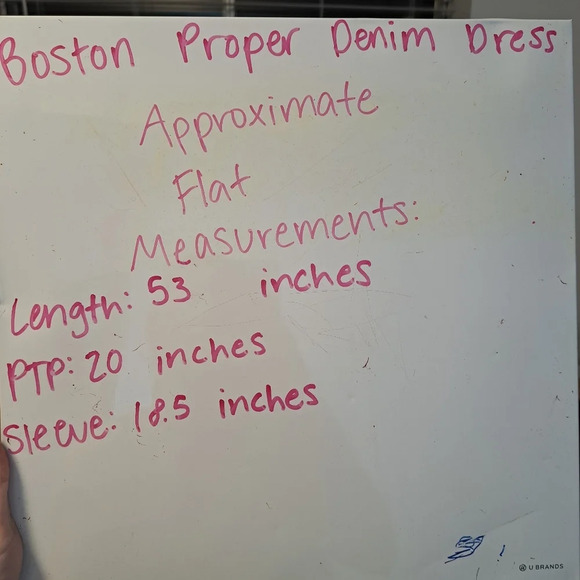 Boston Proper Denim Dress
Approximate
Flat
Measurements:
Length: 53 inches
PTP: 20 inches
Sleeve: 18.5 inches
U BRANDS